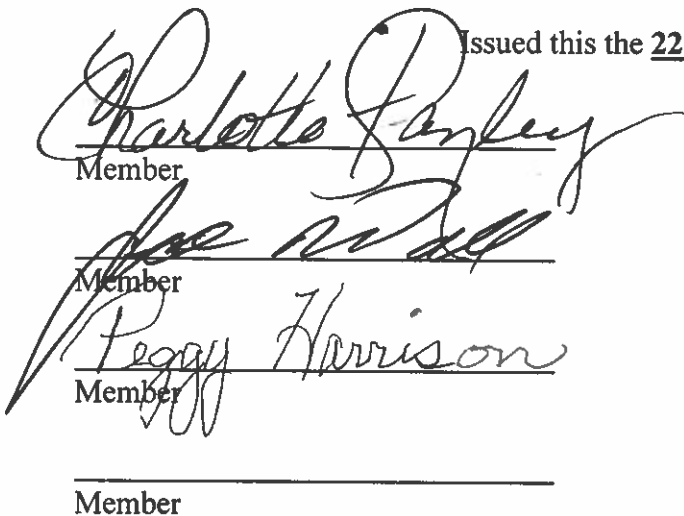 Issued this the 22
Charlotte
Member
Joe
Member
Peggy Harrison
Member
Member